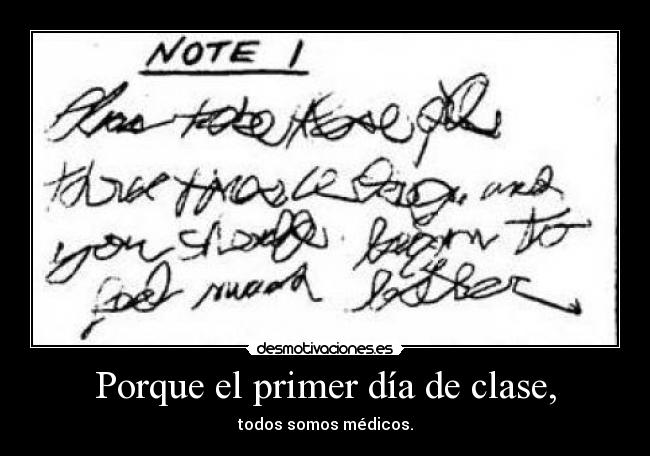 NOTE 1
Please take these pills
three times a day, and
you should begin to
feel much better
desmotivaciones.es
Porque el primer día de clase,
todos somos médicos.